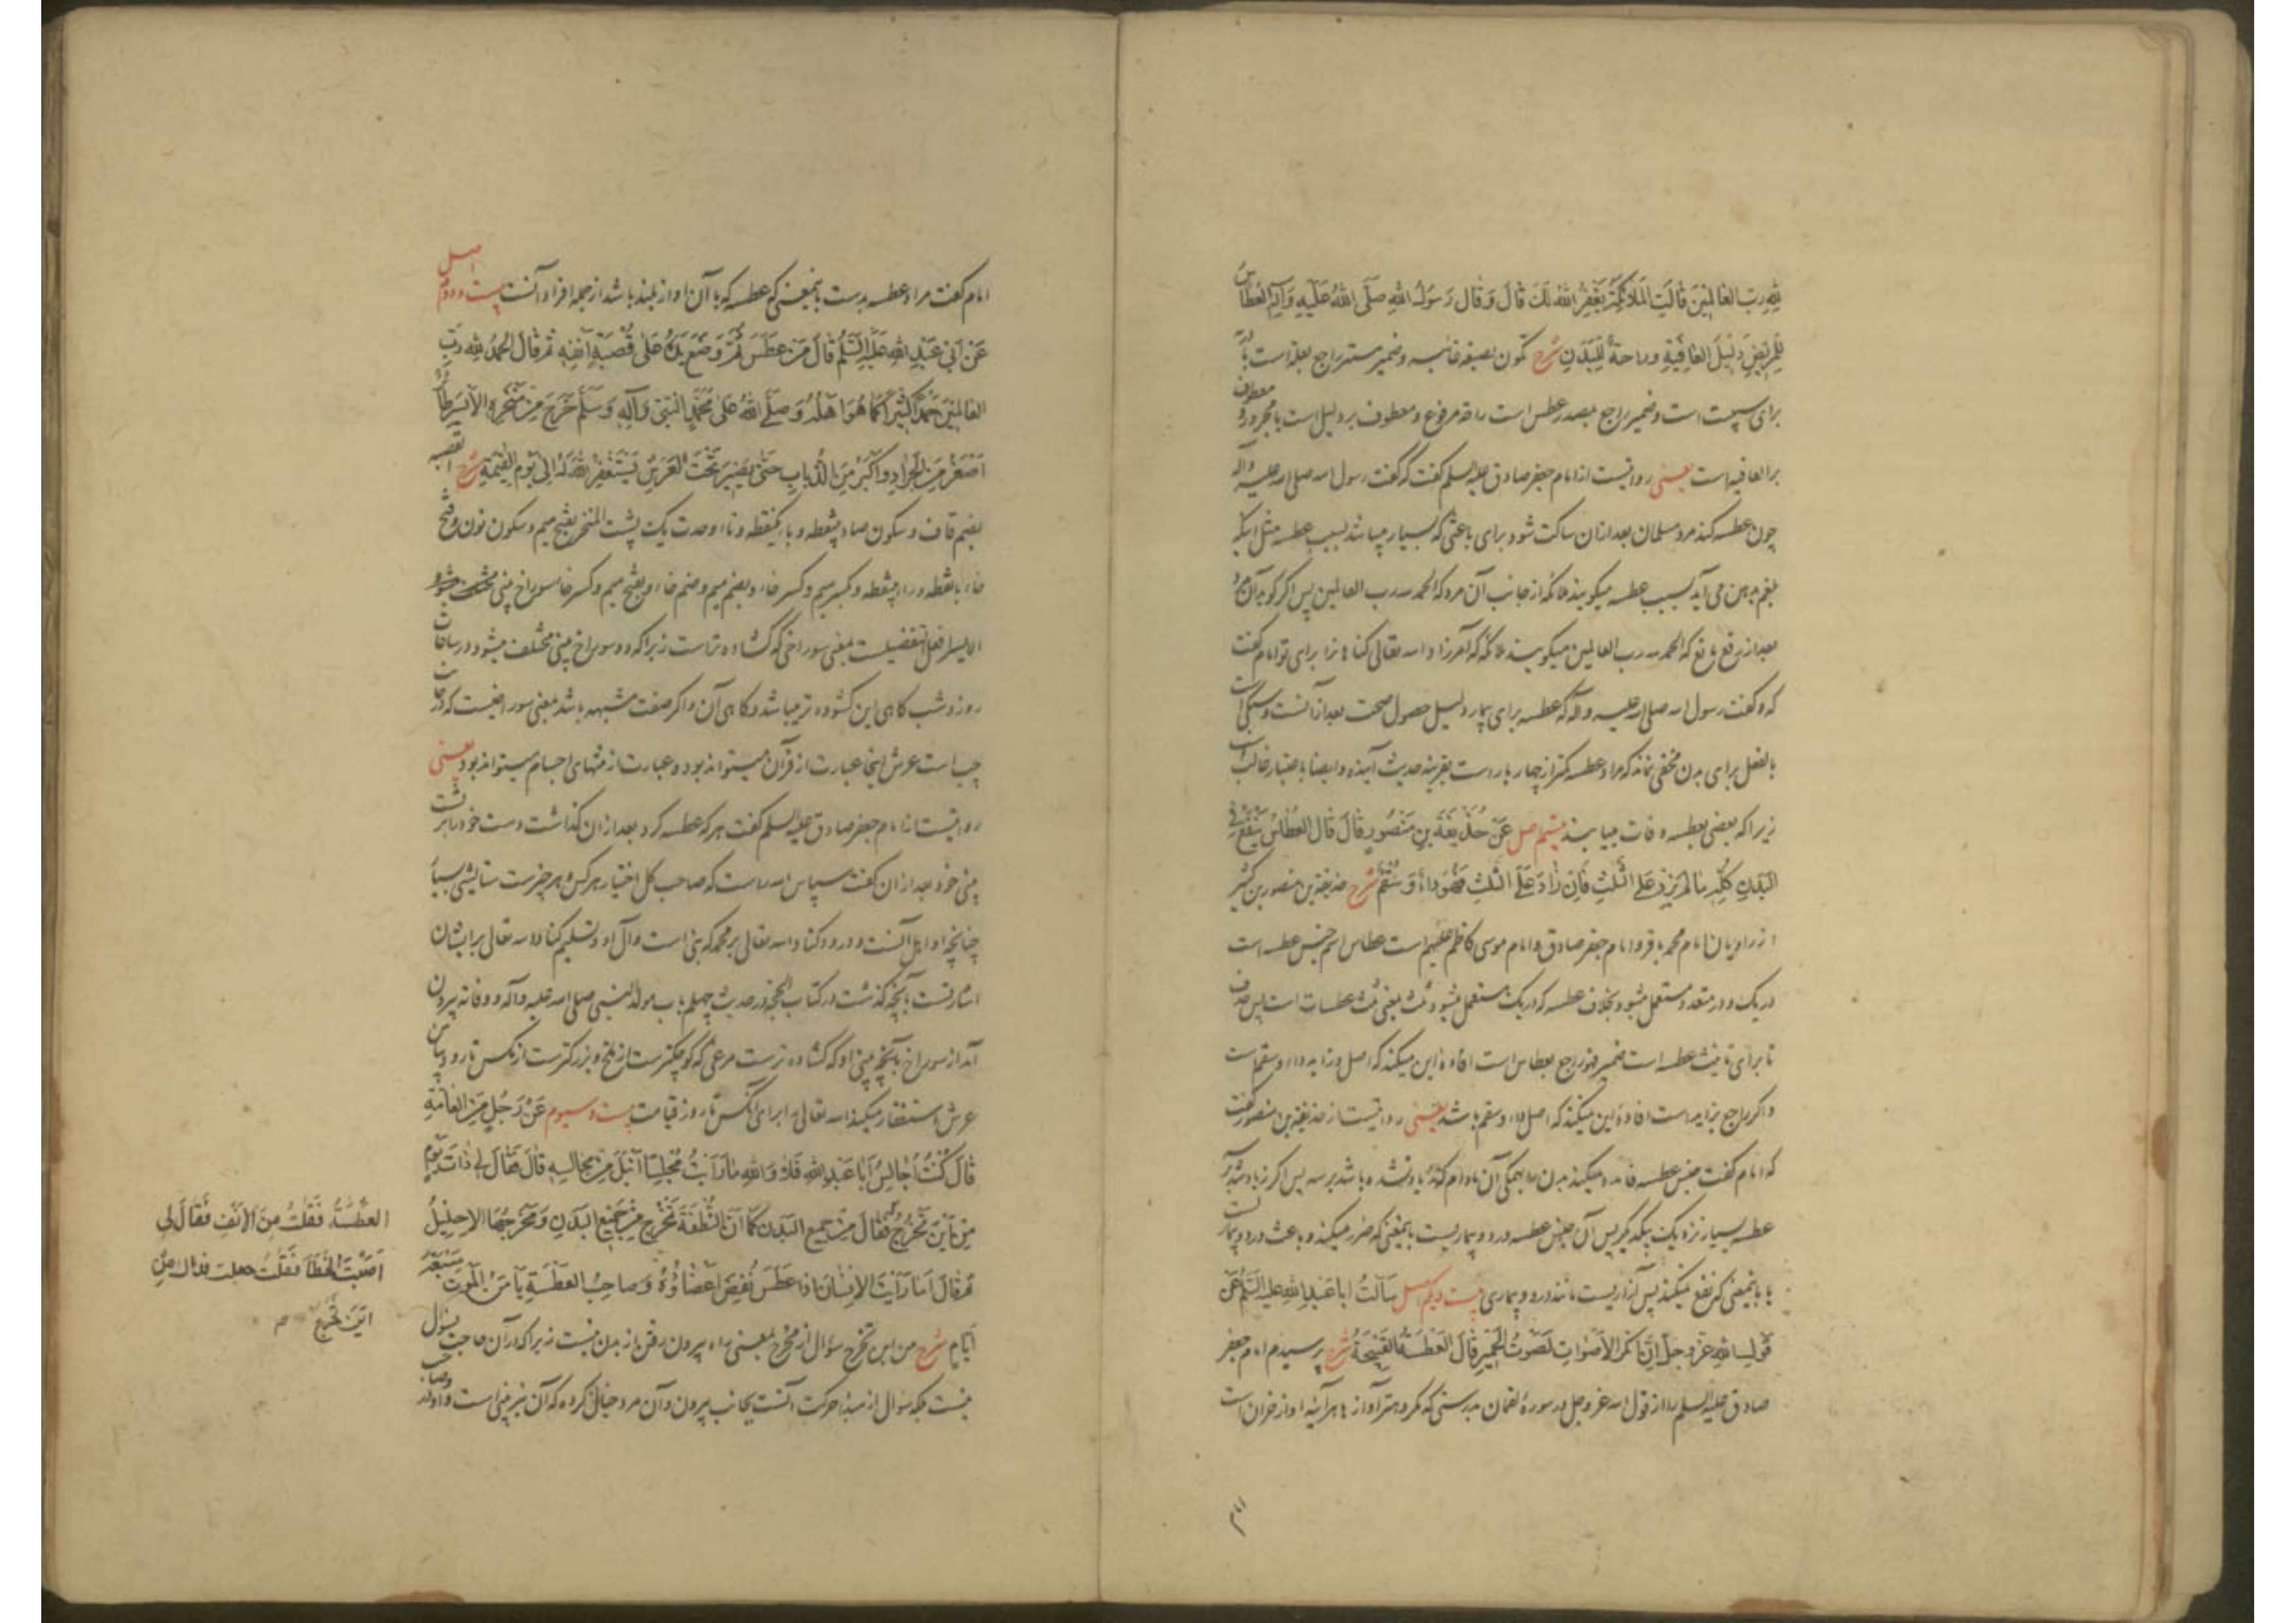 لِلّهِ رَبِّ العَالَمِينَ قَالَتِ المَلَائِكَةُ يَغْفِرُ اللهُ لَكَ قَالَ وَقَالَ رَسُولُ اللهِ صَلَّى اللهُ عَلَيْهِ وَآلِهِ العُطَاسُ
لِلْمَرِيضِ دَلِيلُ العَافِيَةِ وراحةٌ لِلْبَدَنِ شرح تكون بصيغه غائبه وضمير مستتر راجع بعلة است
براى سببيت است وضمير راجع بمصدر عطس است راحة مرفوع ومعطوف بر دليل است يا مجرور و معطوف
بر العافيه است يعنى روايتست از امام جعفر صادق عليه السلم گفت كه گفت رسول الله صلى الله عليه وآله
چون عطسه كند مرد مسلمان بعد ازان ساكت شود براى باعثى كه بسيار ميباشد بسبب عطسه مثل اينكه
بلغم بدهن مى آيد بسبب عطسه ميگويند ملائكه از جانب آن مرد كه الحمد لله رب العالمين پس اگر گويد آن مرد
بعد از رفع مانع كه الحمد لله رب العالمين ميگويند ملائكه كه آمرزاد الله تعالى گناهانرا براى تو امام گفت
كه و گفت رسول الله صلى الله عليه وآله كه عطسه براى بيمار دليل حصول صحت بعد ازآنست و سبكى است
بالفعل براى بدن مخفى نماند كه مراد عطسه كمتر از چهار بار است بقرينه حديث آينده وايضا باعتبار غالب است
زيرا كه بعضى بعطسه وفات مييابند بيستم اصل عَنْ حُذَيْفَةَ بنِ مَنْصُورٍ قَالَ قَالَ العُطَاسُ يَنْفَعُ فِي
البَدَنِ كُلِّهِ مَا لَمْ يَزِدْ عَلَى الثَّلَثِ فَإِنْ زَادَ عَلَى الثَّلَثِ فَهُوَ دَاءٌ وَسُقْمٌ شرح حذيفة بن منصور بن كثير
از راويان امام محمد باقر و امام جعفر صادق و امام موسى كاظم عليهم است عطاس اسم جنس عطسه است
در يك و در متعدد مستعمل ميشود بخلاف عطسه كه در يك مستعمل ميشود ثلث بمعنى ثلث عطسات است پس حذف
تا براى تانيث عطسه است ضمير فهو راجع بعطاس است افاده اين ميكند كه اصل و زايد داء و سقم است
و اگر راجع بزايد است افاده اين ميكند كه اصل داء و سقم باشد يعنى روايتست از حذيفة بن منصور گفت
كه امام گفت جنس عطسه فايده ميكند بدن را بهمگى آن مادام كه زياد نشده باشد بر سه پس اگر زياد شد بر
عطسه بسيار نزديك يكديگر پس آن جنس عطسه درد و بيماريست بايمعنى كه ضرر ميكند و باعث درد و بيماريست
يا بايمعنى كه نفع نميكند پس آزاريست مانند درد و بيمارى بيست و يكم اصل سَأَلْتُ أَبَا عَبْدِ اللهِ عَلَيْهِ السَّلَمُ عَنْ
قَوْلِ اللهِ عَزَّ وَجَلَّ إِنَّ أَنْكَرَ الأَصْوَاتِ لَصَوْتُ الحَمِيرِ قَالَ العَطْسَةُ القَبِيحَةُ شرح پرسيدم امام جعفر
صادق عليه السلم را از قول الله عز وجل در سورۀ لقمان بدرستى كه مكروهتر آوازها هر آينه آواز خران است
امام
امام گفت مراد عطسه بدست بايمعنى كه عطسه كه با آن آواز بلند باشد از جمله افراد آنست بيست و دوم اصل
عَنْ أَبِي عَبْدِ اللهِ عَلَيْهِ السَّلَمُ قَالَ مَنْ عَطَسَ ثُمَّ وَضَعَ يَدَهُ عَلَى قَصَبَةِ أَنْفِهِ ثُمَّ قَالَ الحَمْدُ لِلّهِ رَبِّ
العَالَمِينَ حَمْدًا كَثِيرًا كَمَا هُوَ أَهْلُهُ وَصَلَّى اللهُ عَلَى مُحَمَّدٍ النَّبِيِّ وَآلِهِ وَسَلَّمَ خَرَجَ مِنْ مَنْخِرِهِ الأَيْسَرِ طَائِرٌ
أَصْغَرُ مِنَ الجَرَادِ وَأَكْبَرُ مِنَ الذُّبَابِ حَتَّى يَصِيرَ تَحْتَ العَرْشِ يَسْتَغْفِرُ اللهَ لَهُ إِلَى يَوْمِ القِيمَةِ شرح القصبه
بضم قاف و سكون صاد بينقطه و باء يكنقطه و تاء وحدت يك پشت المنخر بفتح ميم و سكون نون و فتح
خاء با نقطه و راء بينقطه و كسر ميم و كسر خاء و بضم ميم و ضم خاء و بفتح ميم و كسر خا سوراخ بينى
الايسر افعل التفضيلست بمعنى سوراخى كه گشاده تر است زيرا كه دو سوراخ بينى مختلف ميشود در ساعات
روز و شب گاهى اين گشوده تر ميباشد و گاهى آن و اگر صفت مشبهه باشد بمعنى سوراخيست كه در جانب
چپ است عرش اينجا عبارت از قرآن ميتواند بود و عبارت از منتهاى اجسام ميتواند بود يعنى
روايتست از امام جعفر صادق عليه السلم گفت هر كه عطسه كرد بعد ازان گذاشت دست خود را بر پشت
بينى خود بعد ازان گفت سپاس الله راست كه صاحب كل اختيار هر كس و هر چيز ست ستايشى بسيار
چنانچه او اهل آنست و درود كناد الله تعالى بر محمد كه نبى است و آل او و تسليم كناد الله تعالى بر ايشان
اشارتست بآنچه گذشت در كتاب الحجه در حديث چهلم باب مولد النبى صلى الله عليه وآله و وفاته بيرون
آمد از سوراخ بينى او كه گشاده تر ست مرغى كه كوچكتر ست از ملخ و بزرگتر ست از مگس تا رود بپايين
عرش استغفار ميكند الله تعالى را براى آنكس تا روز قيامت بيست و سيوم عَنْ رَجُلٍ مِنَ العَامَّةِ
قَالَ كُنْتُ أُجَالِسُ أَبَا عَبْدِ اللهِ فَلَا وَاللهِ مَا رَأَيْتُ مَجْلِسًا أَنْبَلَ مِنْ مَجَالِسِهِ قَالَ فَقَالَ لِي ذَاتَ يَوْمٍ
مِنْ أَيْنَ تَخْرُجُ فَقَالَ مِنْ جَمِيعِ البَدَنِ كَمَا أَنَّ النُّطْفَةَ تَخْرُجُ مِنْ جَمِيعِ البَدَنِ وَمَخْرَجُهَا الإِحْلِيلُ
ثُمَّ قَالَ أَمَا رَأَيْتَ الإِنْسَانَ إِذَا عَطَسَ نُفِضَ أَعْضَاؤُهُ وَصَاحِبُ العَطْسَةِ يَأْمَنُ المَوْتَ سَبْعَةَ
أَيَّامٍ شرح من اين تخرج سؤال از مخرج بمعنى راه بيرون رفتن از بدن نيست زيرا كه در آن حاجت بسؤال
نيست بلكه سؤال از مبدء حركت آنست بجانب بيرون و آن مرد خيال كرده كه آن نيز بينى است
العَطْسَةُ فَقُلْتُ مِنَ الأَنْفِ فَقَالَ لِي
أَصَبْتَ الخَطَأَ فَقُلْتُ جعلت فداك مِنْ
أَيْنَ تَخْرُجُ